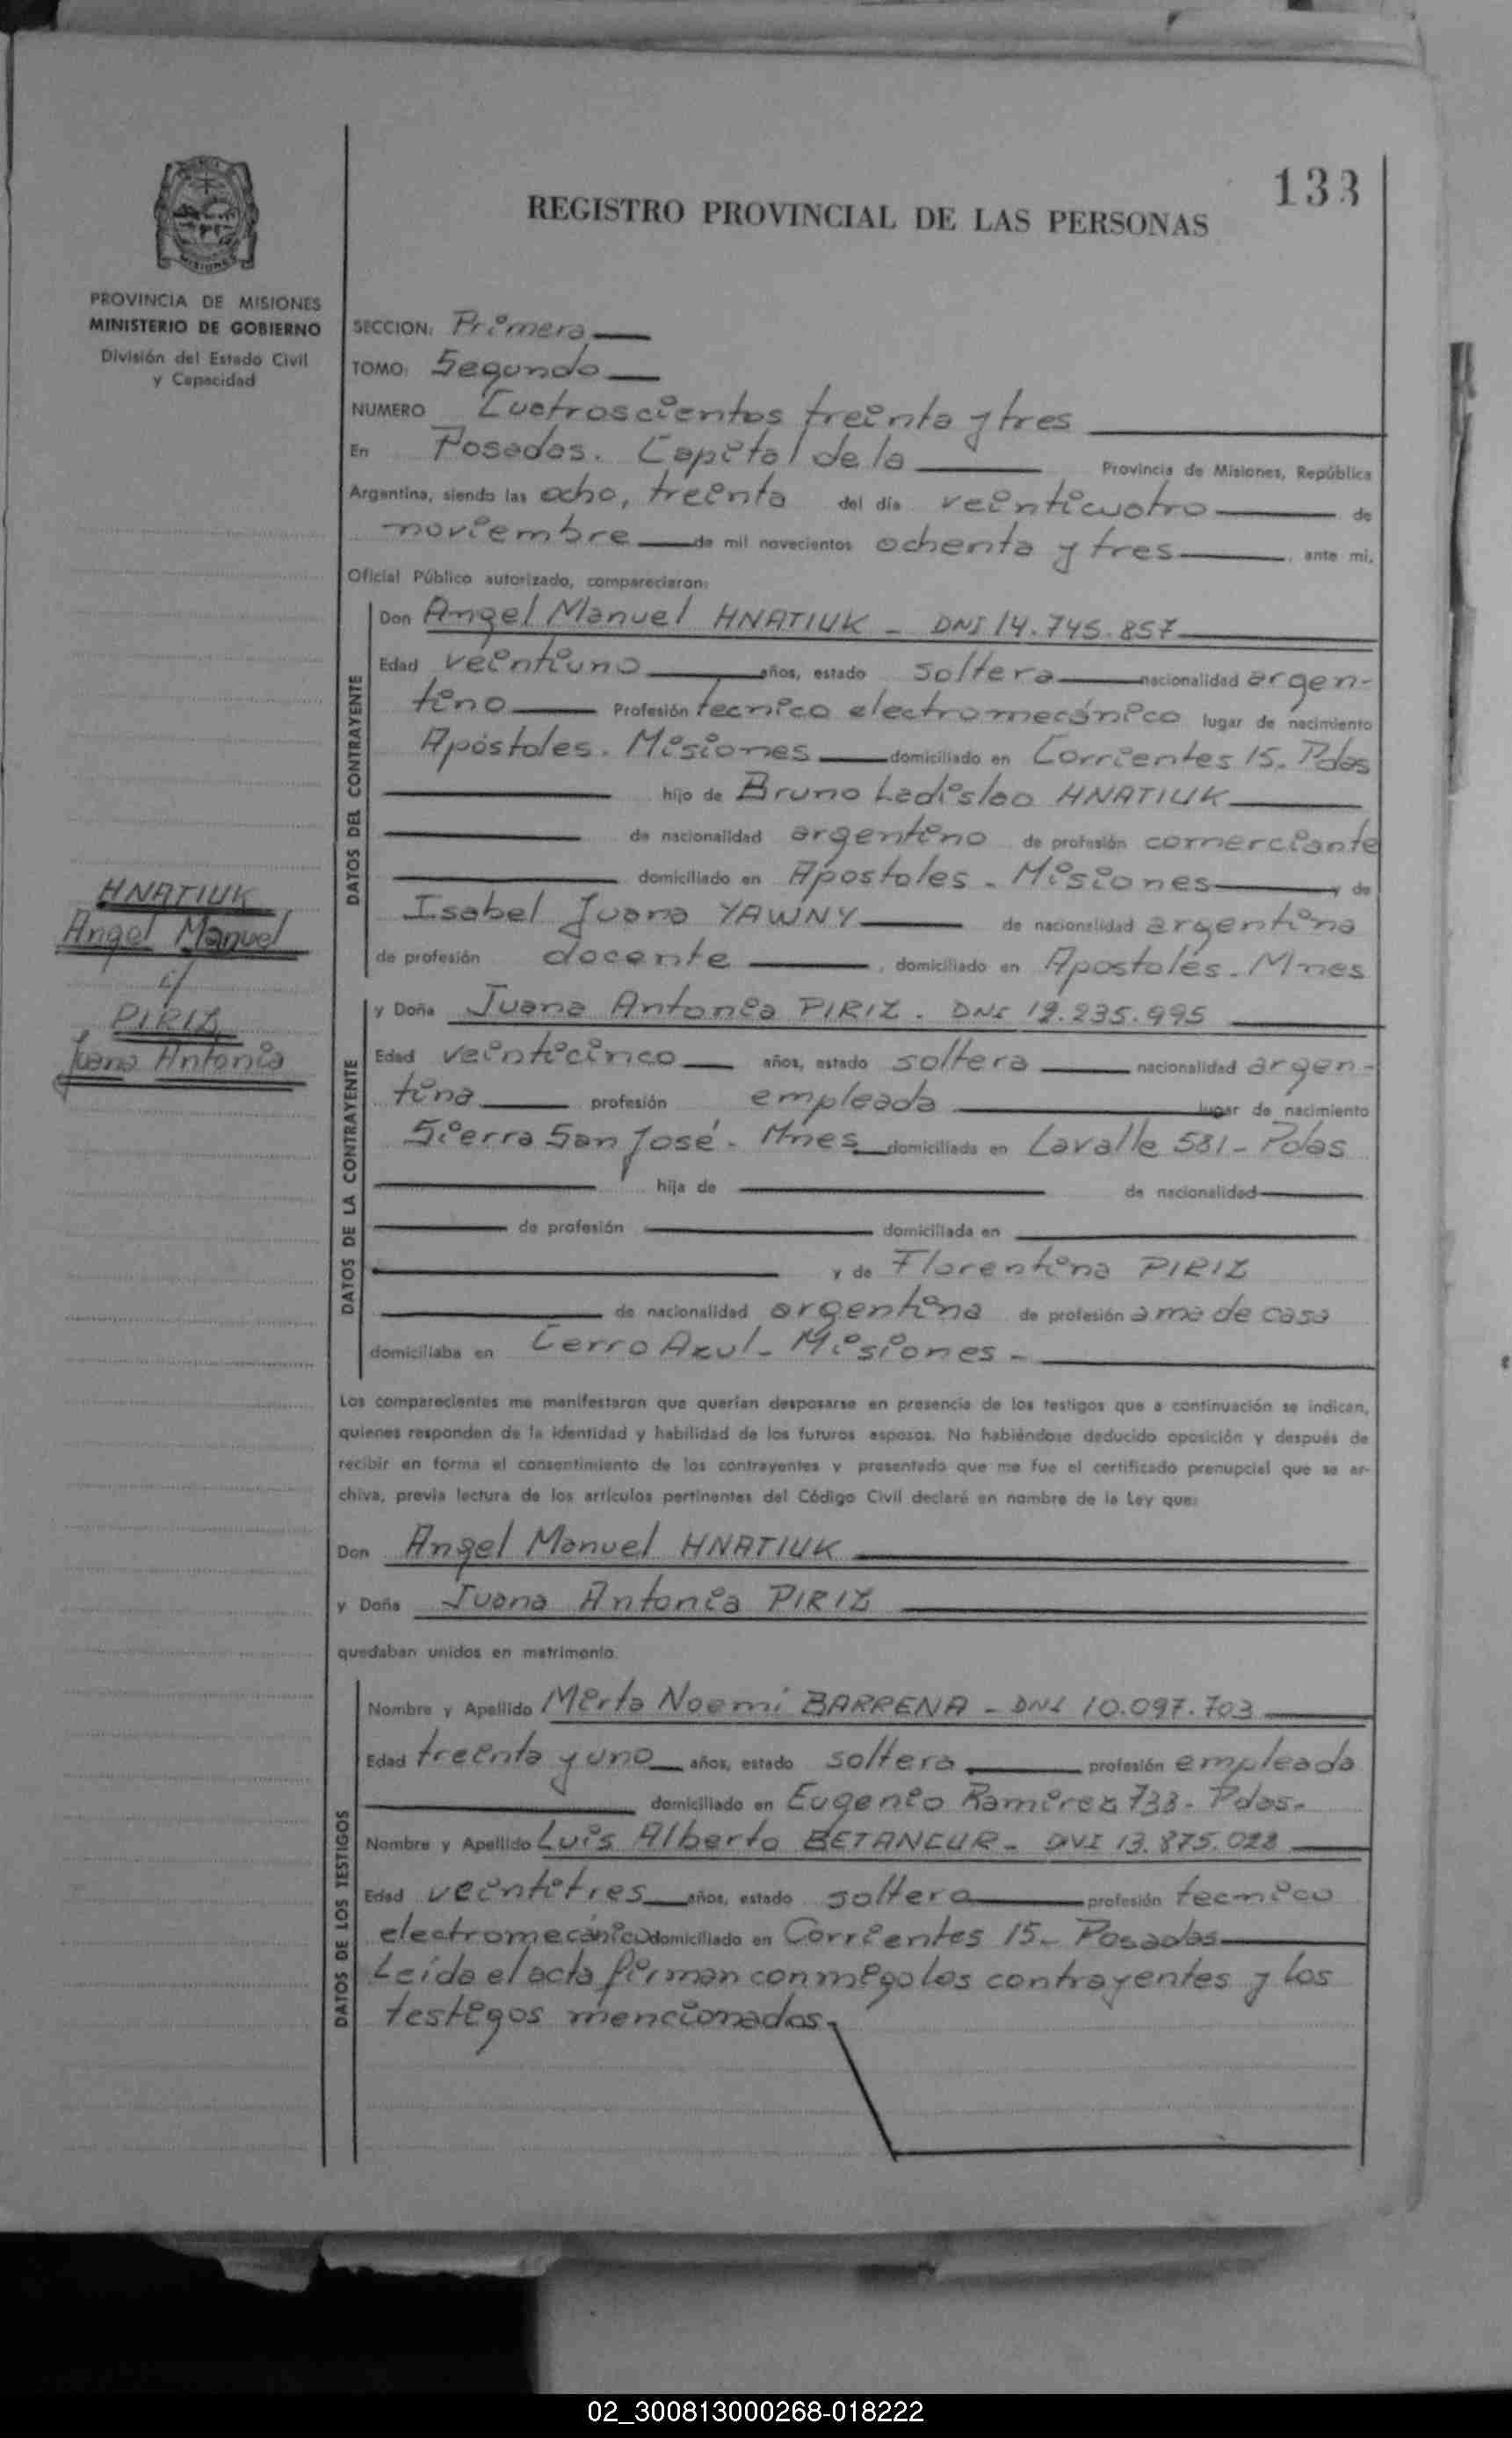 133
REGISTRO PROVINCIAL DE LAS PERSONAS
MISIONES
PROVINCIA DE MISIONES
MINISTERIO DE GOBIERNO
División del Estado Civil
y Capacidad
SECCION: Primera
TOMO: Segundo
NUMERO Cuatroscientos treinta y tres
En Posadas. Capital de la Provincia de Misiones, República
Argentina, siendo las ocho, treinta del día veinticuatro de
noviembre de mil novecientos ochenta y tres ante mi,
Oficial Público autorizado, comparecieron:
DATOS DEL CONTRAYENTE
Don Angel Manuel HNATIUK - DNI 14.745.857
Edad veintiuno años, estado soltero nacionalidad argen-
tino Profesión tecnico electromecánico lugar de nacimiento
Apóstoles. Misiones domiciliado en Corrientes 15. Pdas
hijo de Bruno Ladislao HNATIUK
de nacionalidad argentino de profesión comerciante
domiciliado en Apostoles - Misiones y de
Isabel Juana YAWNY de nacionalidad argentina
de profesión docente, domiciliado en Apostoles - Mnes
HNATIUK
Angel Manuel
c/
PIRIZ
Juana Antonia
DATOS DE LA CONTRAYENTE
y Doña Juana Antonia PIRIZ. DNI 12.235.995
Edad veinticinco años, estado soltera nacionalidad argen-
tina profesión empleada lugar de nacimiento
Sierra San José - Mnes domiciliada en Lavalle 581 - Pdas
hija de de nacionalidad
de profesión domiciliada en
y de Florentina PIRIZ
de nacionalidad argentina de profesión ama de casa
domiciliaba en Cerro Azul - Misiones -
Los comparecientes me manifestaron que querían desposarse en presencia de los testigos que a continuación se indican,
quienes responden de la identidad y habilidad de los futuros esposos. No habiéndose deducido oposición y después de
recibir en forma el consentimiento de los contrayentes y presentado que me fue el certificado prenupcial que se ar-
chiva, previa lectura de los artículos pertinentes del Código Civil declaré en nombre de la Ley que:
Don Angel Manuel HNATIUK
y Doña Juana Antonia PIRIZ
quedaban unidos en matrimonio.
DATOS DE LOS TESTIGOS
Nombre y Apellido Mirta Noemi BARRENA - DNI 10.097.703
Edad treinta y uno años, estado soltera profesión empleada
domiciliado en Eugenio Ramirez 733 - Pdas.
Nombre y Apellido Luis Alberto BETANCUR - DNI 13.875.028
Edad veintitres años, estado soltero profesión tecnico
electromecánico domiciliado en Corrientes 15 - Posadas
Leída el acta firman conmigo los contrayentes y los
testigos mencionados.
02_300813000268-018222